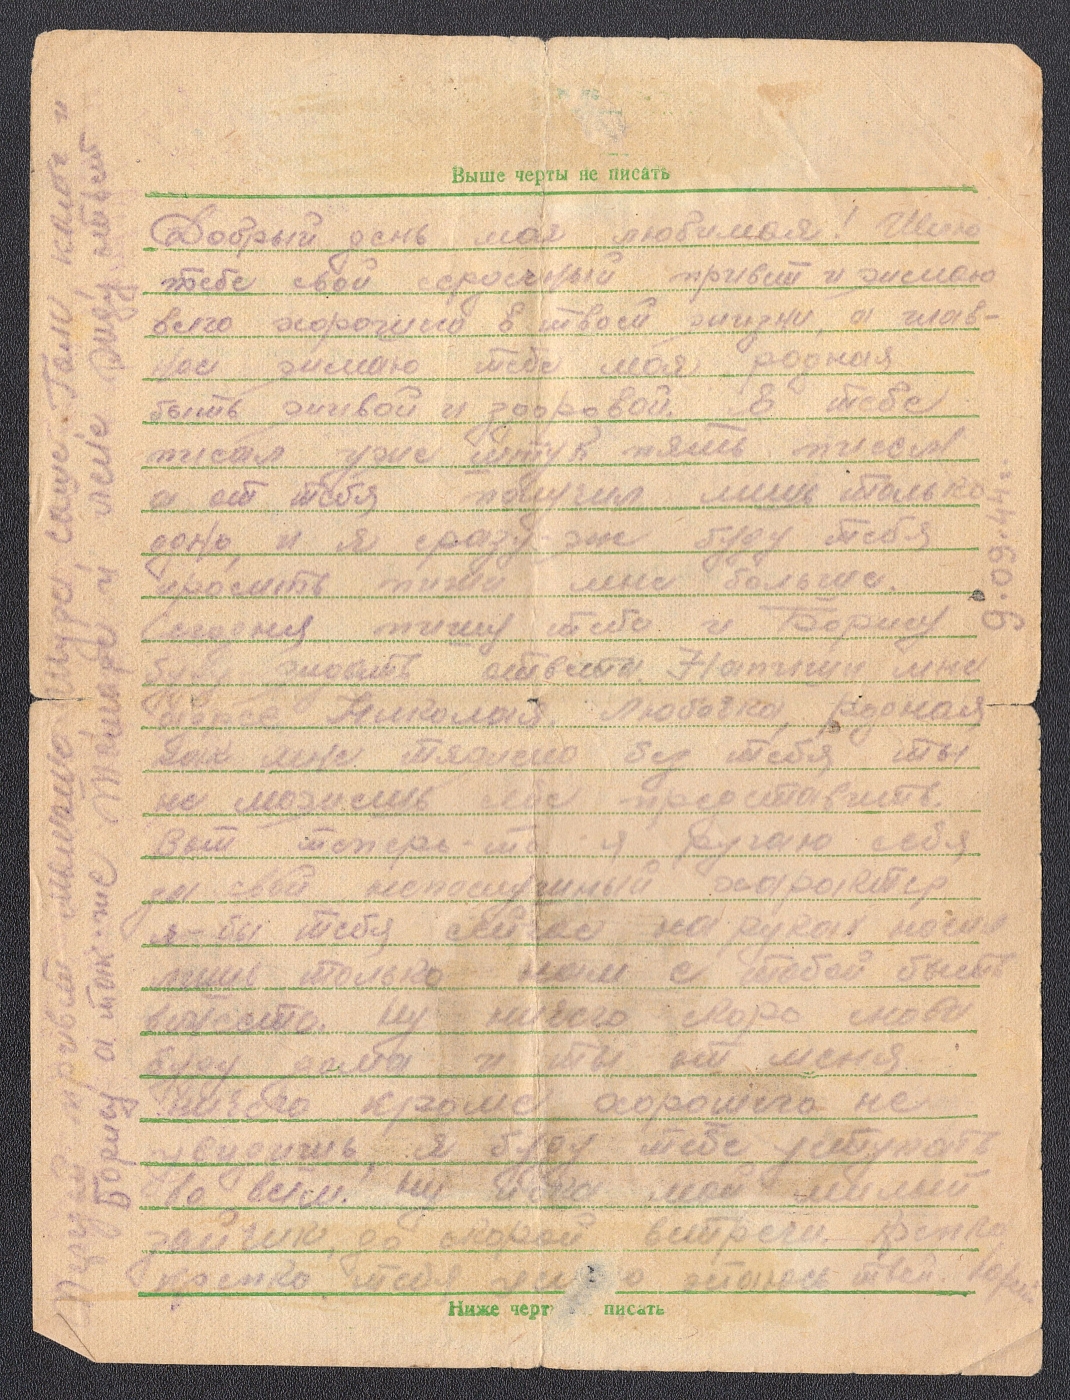 Выше черты не писать
Добрый день моя любимая! Шлю
тебе свой сердечный привет и желаю
всего хорошего в твоей жизни, а глав-
ное желаю тебе моя родная
быть живой и здоровой. Я тебе
писал уже штук пять писем
а от тебя получил лишь только
одно, и я сразу-же буду тебя
просить пиши мне больше.
Сегодня пишу тебе и Борису
буду ждать ответа. Напиши мне
адрес Николая. Любочка, родная
как мне тяжело без тебя ты
не можешь себе представить
Вот теперь-то я ругаю себя
за свой непослушный характер
я-бы тебя сейчас на руках носил
лишь только нам с тобой быть
вместе. Ну ничего скоро снова
буду дома и ты от меня
ничего кроме хорошего не
увидишь, я буду тебе уступать
во всем. Ну пока мой милый
зайчик, до скорой встречи. Крепко
крепко тебя остаюсь твой
Ниже черт писать
9.09.44 г.
привет мамаше Шура, Гале Кате и
Борису а так-же Тамаре и жду ответ